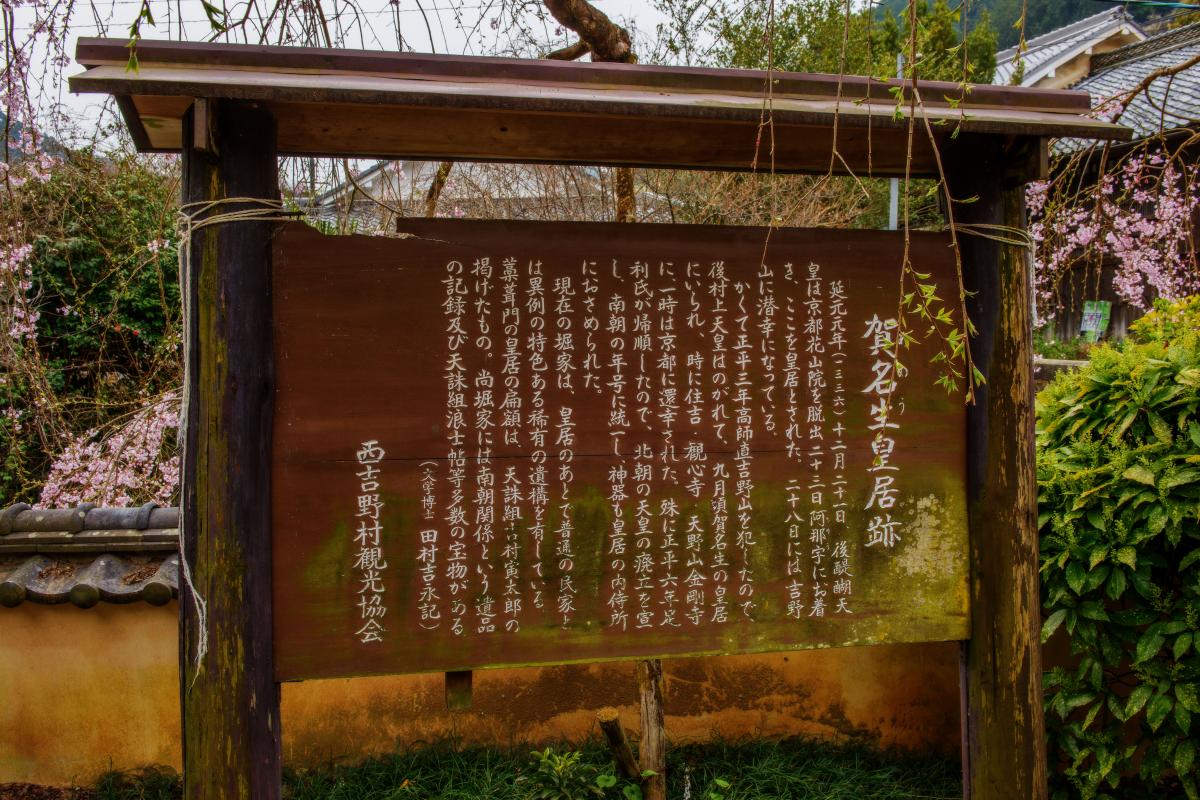 賀名生皇居跡
延元元年(一三三六)十二月二十一日 後醍醐天
皇は京都花山院を脱出二十三日阿那字にお着
き、ここを皇居とされた。二十八日には吉野
山に潜幸になっている。
かくて正平三年高師直吉野山を犯したので、
後村上天皇はのがれて、九月頃賀名生の皇居
にいられ、時に住吉 観心寺 天野山金剛寺
に一時は京都に還幸された。殊に正平六年足
利氏が帰順したので、北朝の天皇の廃立を宣
し、南朝の年号に統一し、神器も皇居の内侍所
におさめられた。
現在の堀家は、皇居のあとで普通の民家と
は異例の特色ある稀有の遺構を有している。
藁葺門の皇居の扁額は、天誅組吉村寅太郎の
掲げたもの。尚堀家には南朝関係という遺品
の記録及び天誅組浪士帖等多数の宝物がある
(文学博士 田村吉永記)
西吉野村観光協会